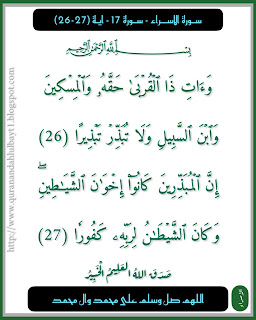 سورة الاسراء - سورة 17 - اية (27-26)
بِسْمِ اللَّهِ الرَّحْمَنِ الرَّحِيمِ
وَءَاتِ ذَا الْقُرْبَىٰ حَقَّهُۥ وَالْمِسْكِينَ
وَابْنَ السَّبِيلِ وَلَا تُبَذِّرْ تَبْذِيرًا (26)
إِنَّ الْمُبَذِّرِينَ كَانُوٓا۟ إِخْوَٰنَ الشَّيَٰطِينِ ۖ
وَكَانَ الشَّيْطَٰنُ لِرَبِّهِۦ كَفُورًا (27)
صَدَقَ اللهُ العَلِيمُ الخَبِيرُ
اللهم صل وسلم على محمد وال محمد
http://www.quranandahlulbayt1.blogspot.com
الاسراء